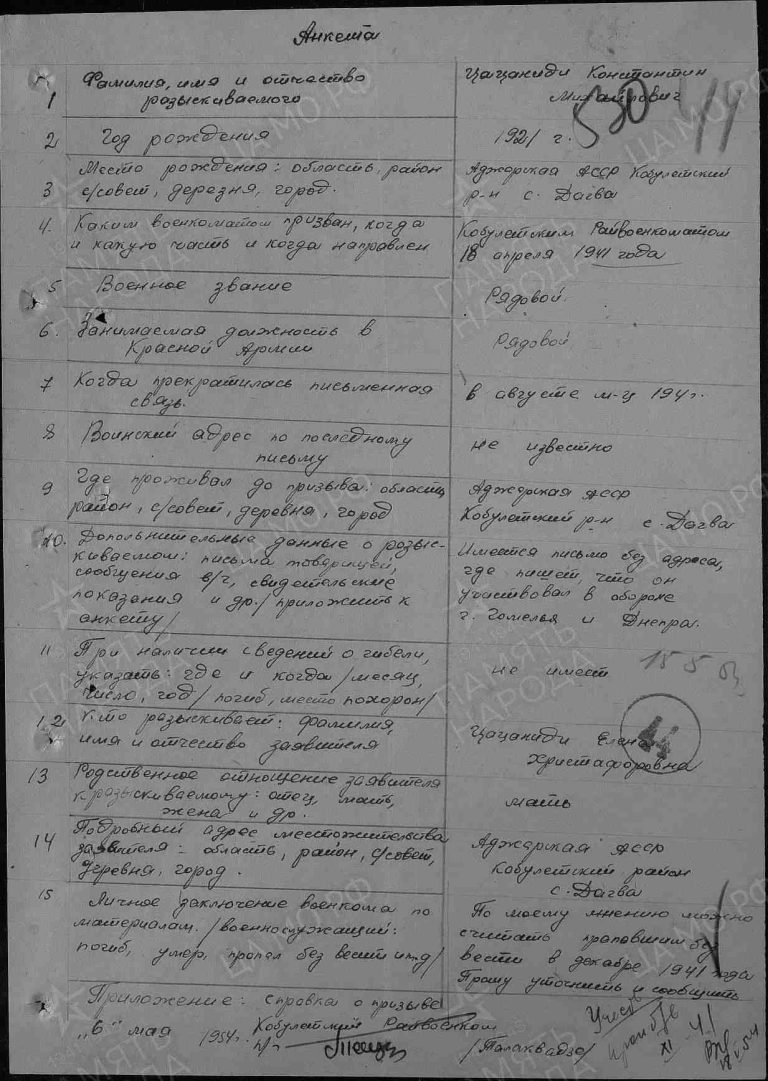 Анкета
1 Фамилия, имя и отчество
разыскиваемого
Цацаниди Константин
Михайлович
530
44
2 Год рождения
1921 г.
3 Место рождения: область, район
с/совет, деревня, город.
Аджарская АССР Кобулетский
р-н с. Дагва
4. Каким военкоматом призван, когда
и какую часть и когда направлен
Кобулетским Райвоенкоматом
18 апреля 1941 года
5 Военное звание
Рядовой.
6. Занимаемая должность в
Красной Армии
Рядовой
7 Когда прекратилась письменная
связь.
в августе м-ц 1941г.
8 Воинский адрес по последному
письму
не известно
9 Где проживал до призыва: область,
район, с/совет, деревня, город
Аджарская АССР
Кобулетский р-н с. Дагва
10. Дополнительные данные о розыс-
киваемом: письма товарищей,
сообщения в/ч, свидетельские
показания и др./ приложить к
анкету/
Имеется письмо без адреса,
где пишет, что он
участвовал в обороне
г. Гомелья и Днепра.
11 При наличии сведений о гибели,
указать: где и когда /месяц,
число, год/ погиб, место похорон/
не имеет
12 Кто разыскивает: фамилия,
имя и отчество заявителя
Цацаниди Елена
Христафоровна
44
13 Родственное отнощение заявителя
к разыскиваемому: отец, мать,
жена и др.
мать
14 Подробный адрес местожительства
заявителя - область, район, с/совет,
деревня, город.
Аджарская АССР
Кобулетский район
с. Дагва
15 Личное заключение военкома по
материалам. /военнослужащий:
погиб, умер, пропал без вести и т.д/
По моему мнению можно
считать пропавшим без
вести в декабре 1941 года
Прошу уточнить и сообщить
Приложение: справка о призыве
„6" мая 1954г. Кобулетский Райвоенком
п/п
/Талаквадзе/
ЦАМО.РФ
ПАМЯТЬ
НАРОДА